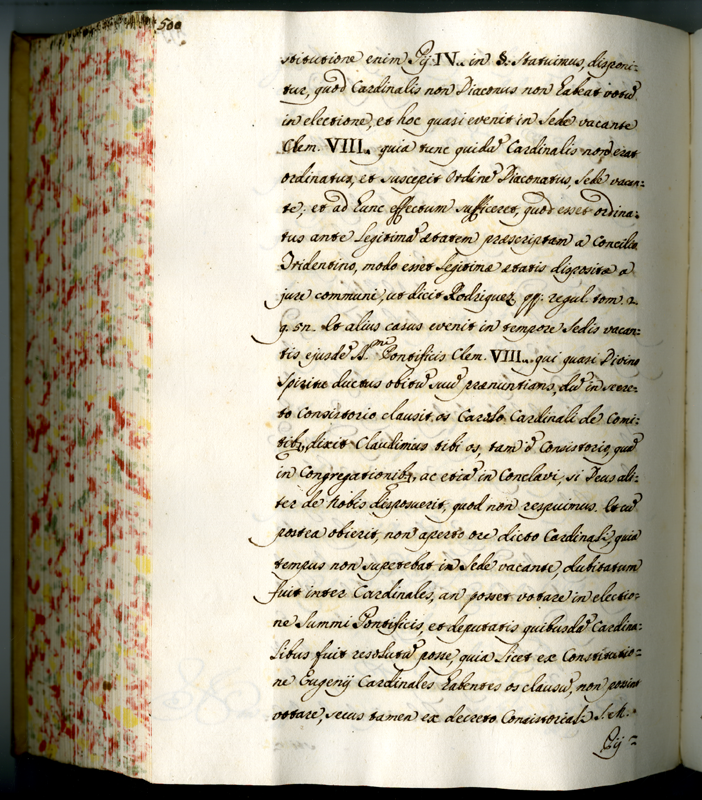 500
stitutione enim Pij IV. in §. Statuimus, disponi-
tur, quod Cardinalis non Diaconus non habeat votũ
in electione, et hoc quasi evenit in Sede vacante
Clem. VIII. quia tunc quidã Cardinalis non erat
ordinatus, et suscepit Ordinẽ Diaconatus, Sede vacan-
te; et ad hunc effectum sufficeret, quod esset ordina-
tus ante legitimã ætatem præscriptam a Concilio
Tridentino, modo esset legitimæ ætatis dispositæ a
jure communi, ut dicit Rodriquez pp. regul. tom. 2.
q. 57. Et alius casus evenit in tempore Sedis vacan-
tis ejusdẽ Pontificis Clem. VIII. qui quasi Divino
Spiritu ductus obitũ suũ prænuntians, dũ in secre-
to Consistorio clausit os Carolo Cardinali de Comi-
tibq, dixit Claudimus tibi os, tam ĩ Consistorio, quã
in Congregationibq, ac etiã in Conclavi, si Deus ali-
ter de Nobis disposuerit, quod non respuimus. Et cũ
postea obierit, non aperto ore dicto Cardinali, quia
tempus non supetebat in Sede vacante, dubitatum
fuit inter Cardinales, an posset votare in electio-
ne Summi Pontificis, et deputatis quibusdã Cardina-
libus fuit resolutũ posse, quia licet ex Constitutio-
ne Eugenij Cardinales habentes os clausũ, non possint
votare, secus tamen ex decreto Consistoriali S. M.
Pij-